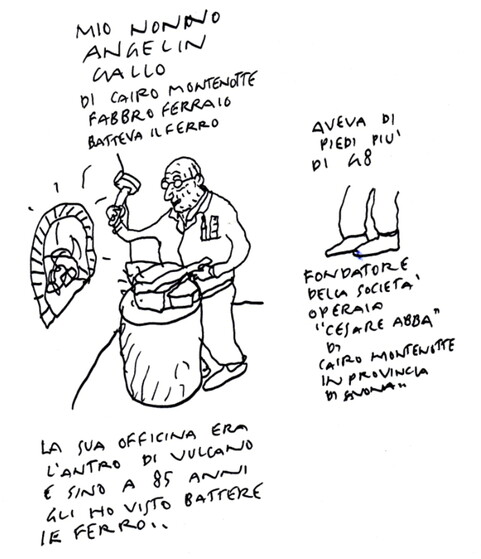 MIO NONNO
ANGELIN
GALLO
DI CAIRO MONTENOTTE
FABBRO FERRAIO
BATTEVA IL FERRO
AVEVA DI
PIEDI PIU'
DI 48
FONDATORE
DELLA SOCIETA'
OPERAIA
"CESARE ABBA"
DI
CAIRO MONTENOTTE
IN PROVINCIA
DI SAVONA"
LA SUA OFFICINA ERA
L'ANTRO DI VULCANO
E SINO A 85 ANNI
GLI HO VISTO BATTERE
IL FERRO..